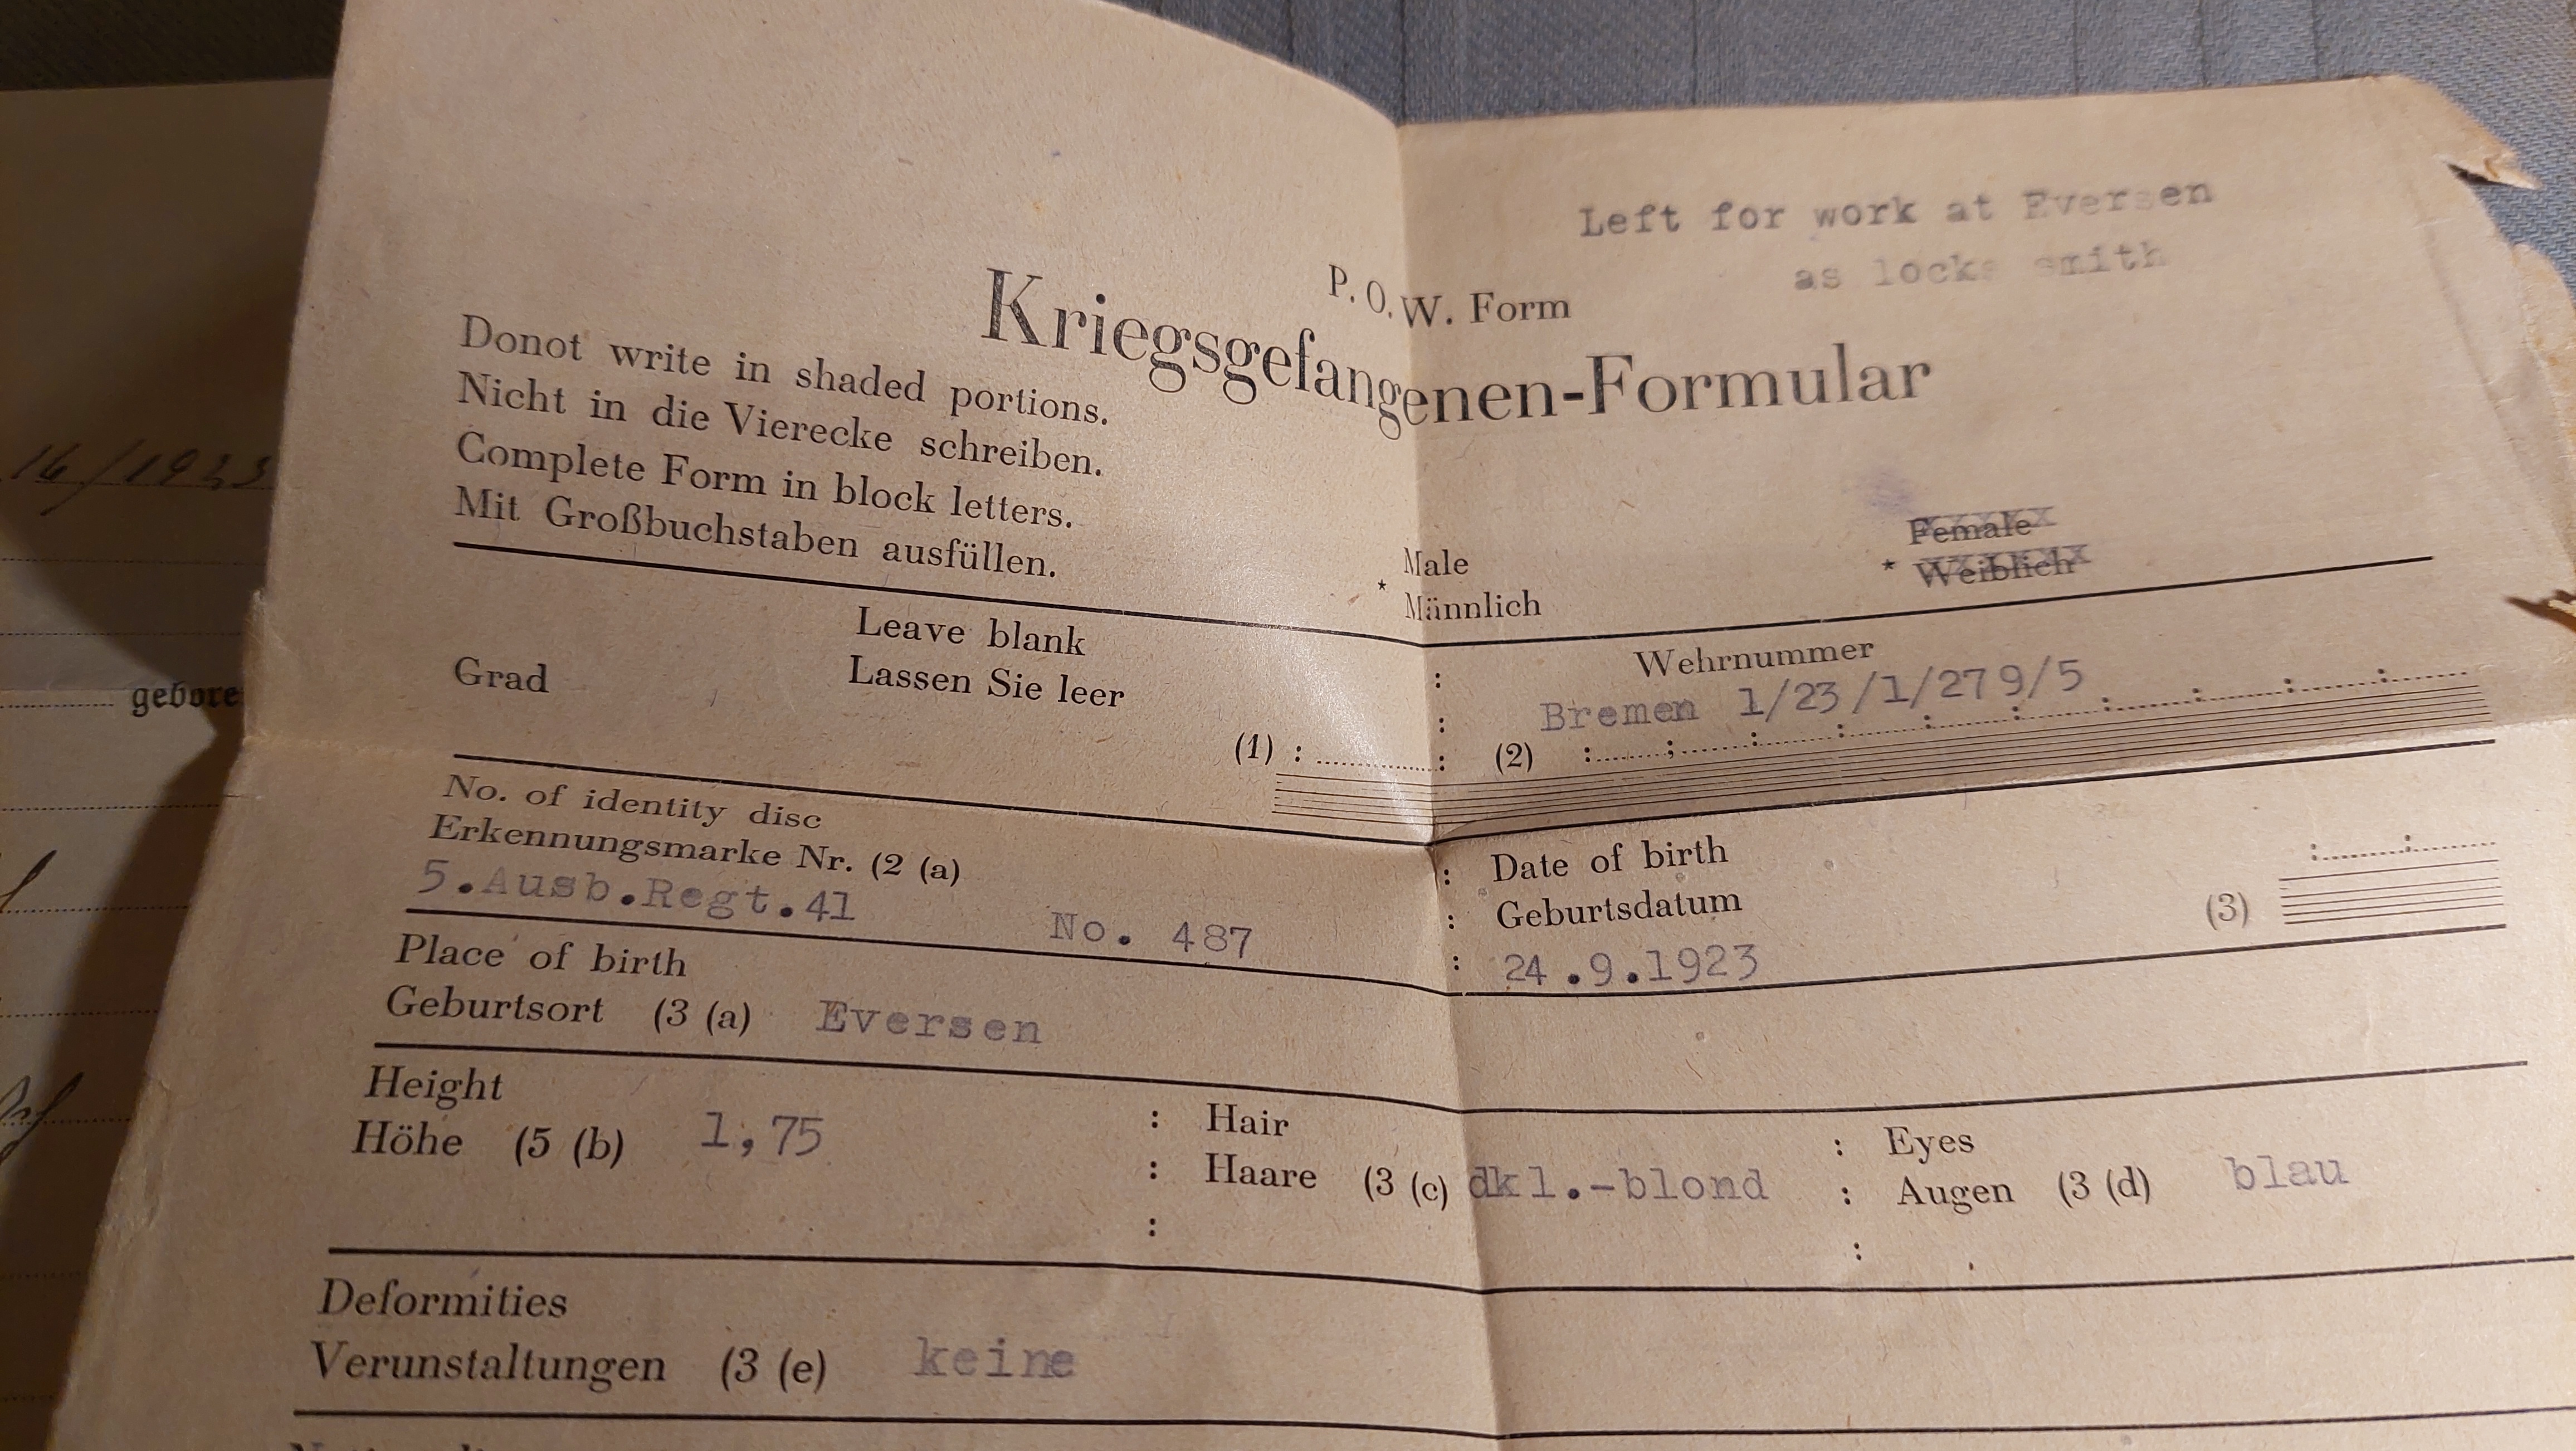 Left for work at Eversen
as locks smith
P. O. W. Form
Kriegsgefangenen-Formular
Donot write in shaded portions.
Nicht in die Vierecke schreiben.
Complete Form in block letters.
Mit Großbuchstaben ausfüllen.
* Male
Männlich
Female
* Weiblich
Leave blank
Grad Lassen Sie leer
(1) :
: Wehrnummer
: Bremen 1/23/1/279/5
: (2)
No. of identity disc
Erkennungsmarke Nr. (2 (a)
5.Ausb.Regt.41 No. 487
: Date of birth
: Geburtsdatum (3)
: 24.9.1923
Place of birth
Geburtsort (3 (a) Eversen
Height
Höhe (5 (b) 1,75
: Hair
: Haare (3 (c) dkl.-blond
:
: Eyes
: Augen (3 (d) blau
:
Deformities
Verunstaltungen (3 (e) keine
16/1923
gebore